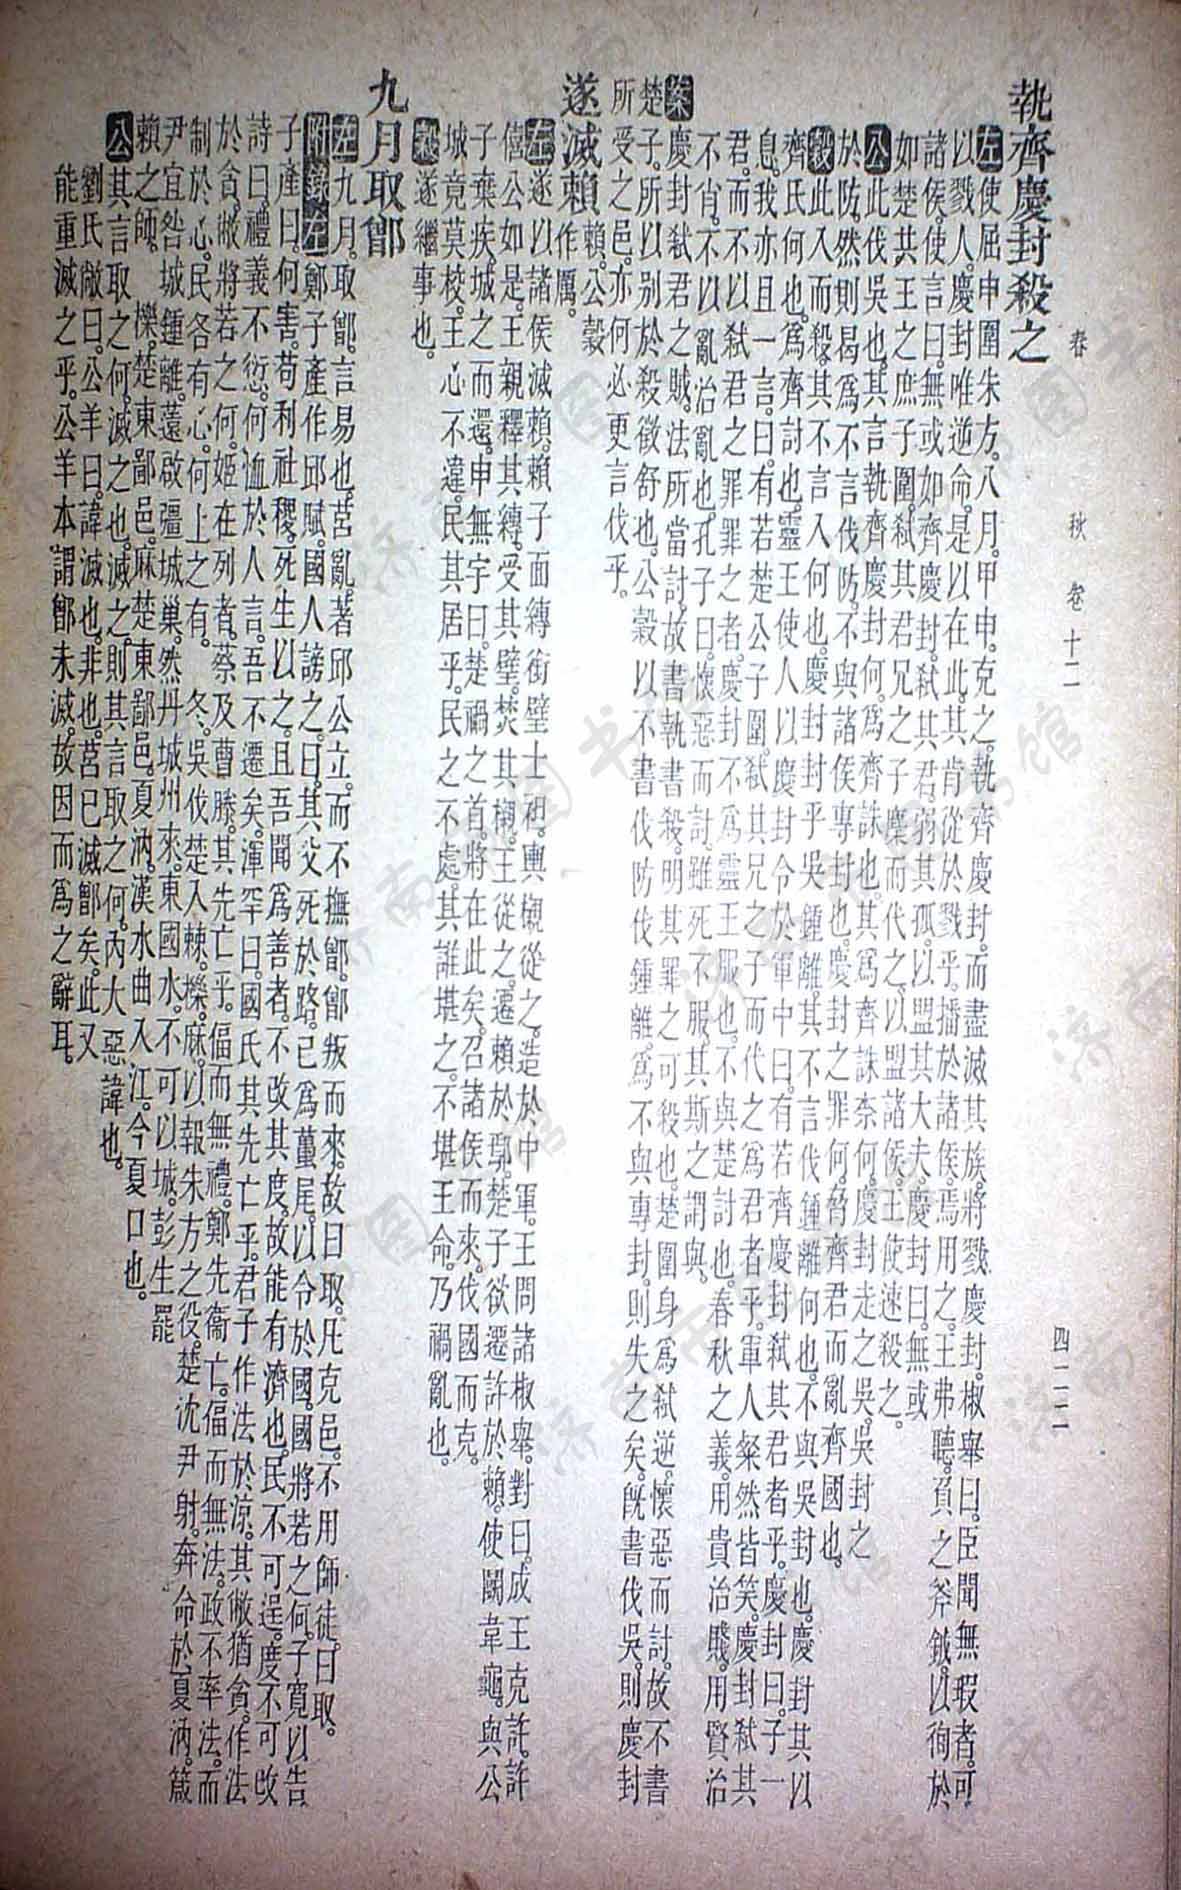 春　秋　卷十二　四一一二
執齊慶封殺之
左使屈申圍朱方。八月。甲申。克之。執齊慶封。而盡滅其族。將戮慶封。椒舉曰。臣聞無瑕者。可
以戮人。慶封唯逆命。是以在此。其肯從於戮乎。播於諸侯。焉用之。王弗聽。負之斧鉞。以徇於
諸侯。使言曰。無或如齊慶封。弒其君。弱其孤。以盟其大夫。慶封曰。無或
如楚共王之庶子圍。弒其君兄之子麇而代之。以盟諸侯。王使速殺之。
公此伐吳也。其言執齊慶封何。爲齊誅也。其爲齊誅奈何。慶封走之吳。吳封之
於防。然則曷爲不言伐防。不與諸侯專封也。慶封之罪何。脅齊君而亂齊國也。
穀此入而殺。其不言入何也。慶封封乎吳鍾離。其不言伐鍾離何也。不與吳封也。慶封其以
齊氏何也。爲齊討也。靈王使人以慶封令於軍中曰。有若齊慶封弒其君者乎。慶封曰。子一
息。我亦且一言。曰。有若楚公子圍。弒其兄之子而代之爲君者乎。軍人粲然皆笑。慶封弒其
君。而不以弒君之罪罪之者。慶封不爲靈王服也。不與楚討也。春秋之義。用貴治賤。用賢治
不肖。不以亂治亂也。孔子曰。懷惡而討。雖死不服。其斯之謂與。
案慶封弒君之賊。法所當討。故書執書殺。明其罪之可殺也。楚圍身爲弒逆。懷惡而討。故不書
楚子。所以别於殺徵舒也。公穀以不書伐防伐鍾離。爲不與專封。則失之矣。旣書伐吳。則慶封
所受之邑。亦何必更言伐乎。
遂滅賴 賴。公穀作厲。
左遂以諸侯滅賴。賴子面縛銜璧。士袒。輿櫬從之。造於中軍。王問諸椒舉。對曰。成王克許。許
僖公如是。王親釋其縛。受其璧。焚其櫬。王從之。遷賴於鄢。楚子欲遷許於賴。使鬬韋龜。與公
子棄疾。城之而還。申無宇曰。楚禍之首。將在此矣。召諸侯而來。伐國而克。
城竟莫校。王心不違。民其居乎。民之不處。其誰堪之。不堪王命。乃禍亂也。
穀遂繼事也。
九月取鄫
左九月。取鄫。言易也。莒亂。著邱公立。而不撫鄫。鄫叛而來。故曰取。凡克邑。不用師徒。曰取。
附錄左鄭子產作邱賦。國人謗之。曰。其父死於路。已爲蠆尾。以令於國。國將若之何。子寬以告
子產曰。何害。苟利社稷。死生以之。且吾聞爲善者。不改其度。故能有濟也。民不可逞。度不可改
詩曰。禮義不愆。何恤於人言。吾不遷矣。渾罕曰。國氏其先亡乎。君子作法於涼。其敝猶貪。作法
於貪。敝將若之何。姬在列者。蔡及曹滕。其先亡乎。偪而無禮。鄭先衛亡。偪而無法。政不率法。而
制於心。民各有心。何上之有。　冬。吳伐楚。入棘。櫟。麻。以報朱方之役。楚沈尹射。奔命於夏汭。箴
尹宜咎城鍾離。薳啟彊城巢。然丹城州來。東國水。不可以城。彭生罷
賴之師。　櫟。楚東鄙邑。麻楚東鄙邑。夏汭。漢水曲入江。今夏口也。
公其言取之何。滅之也。滅之。則其言取之何。內大惡諱也。
劉氏敞曰。公羊曰。諱滅也。非也。莒已滅鄫矣。此又
能重滅之乎。公羊本謂鄫未滅。故因而爲之辭耳。